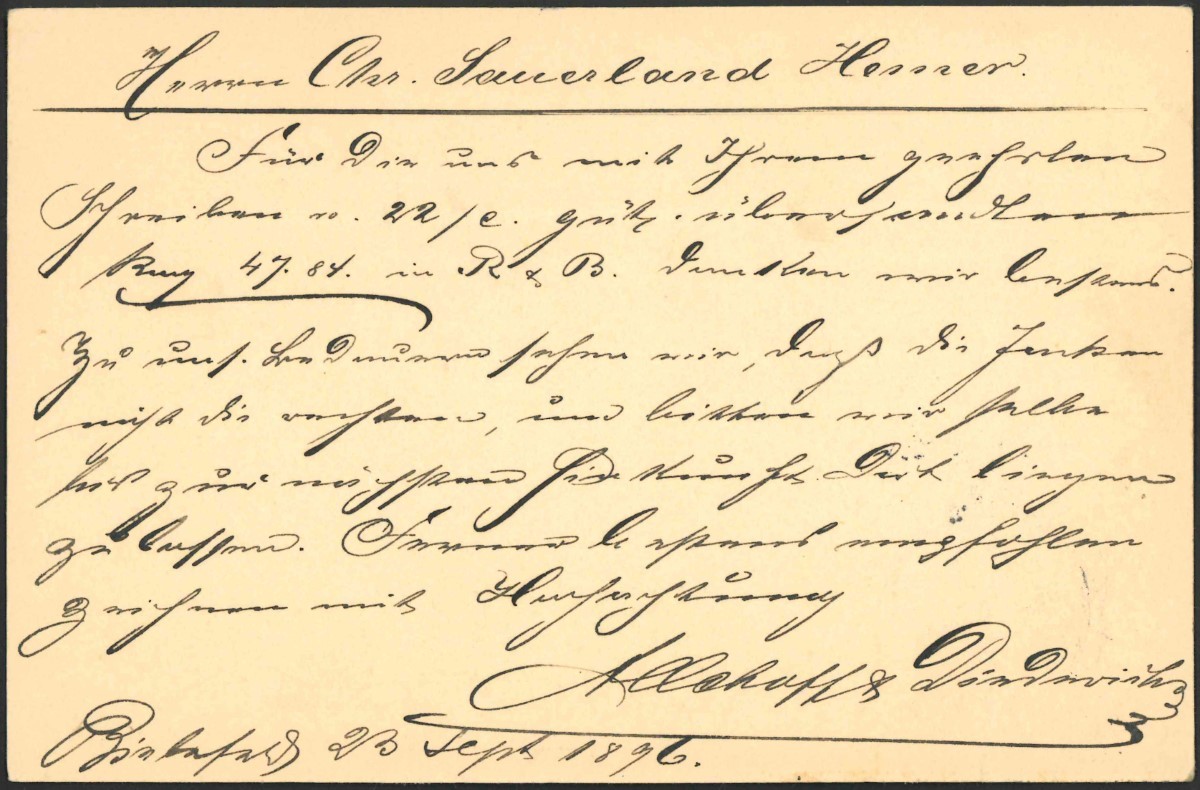 Herrn Chr. Sauerland Hemer.
Für die uns mit Ihrem geehrten
Schreiben v. 22/c. güt. übersandten
47.84. in R & B. danken wir bestens.
Zu uns. Bedauern sehen wir, daß die
nicht die rechten, und bitten wir selbe
bis zur nächsten Hinkunft dort liegen
zu lassen. Ferner bestens empfohlen
zeichnen mit Hochachtung
& Diederichs
Bielefeld 23 Sept 1896.